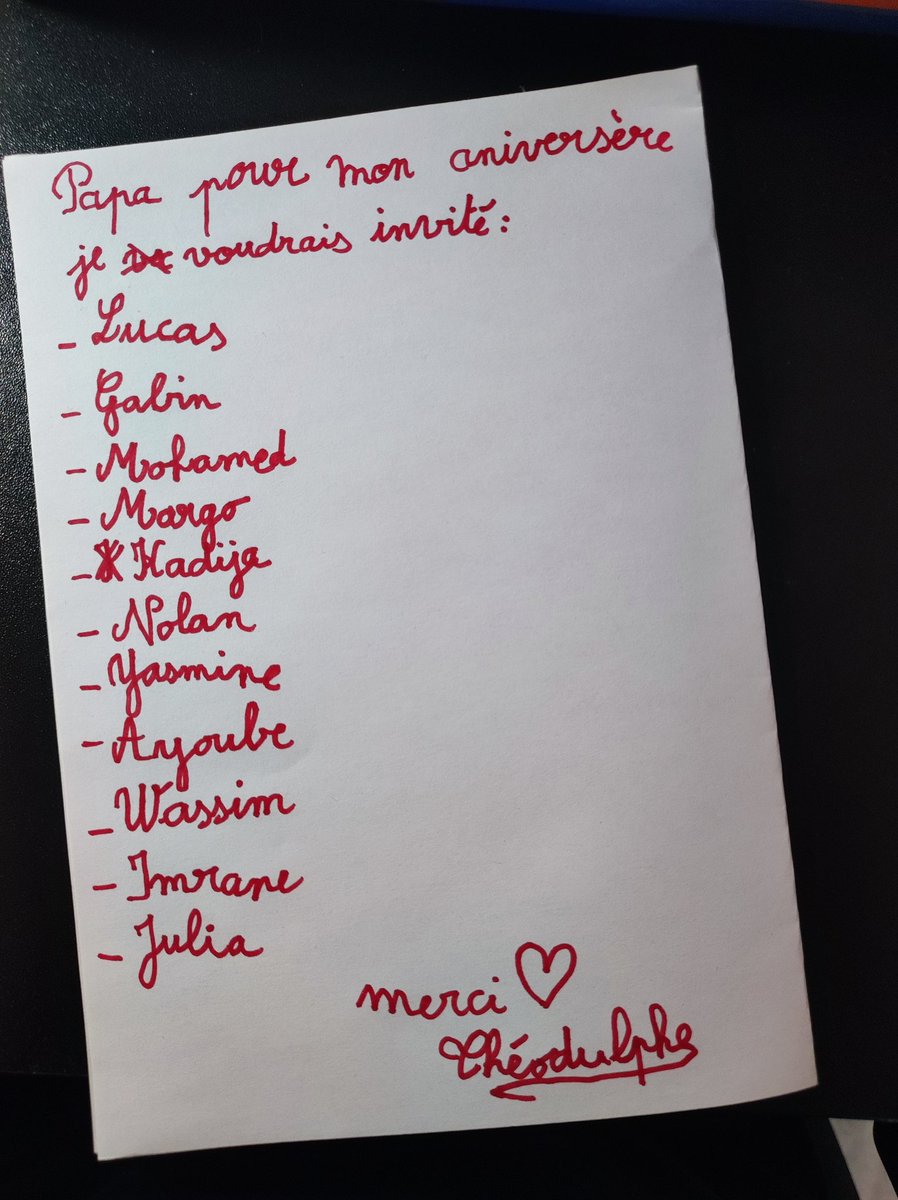 Papa pour mon aniversère
je voudrais invité :
- Lucas
- Gabin
- Mohamed
- Margo
- Kadija
- Nolan
- Yasmine
- Ayoube
- Wassim
- Imrane
- Julia
merci ♡
Théodulphe